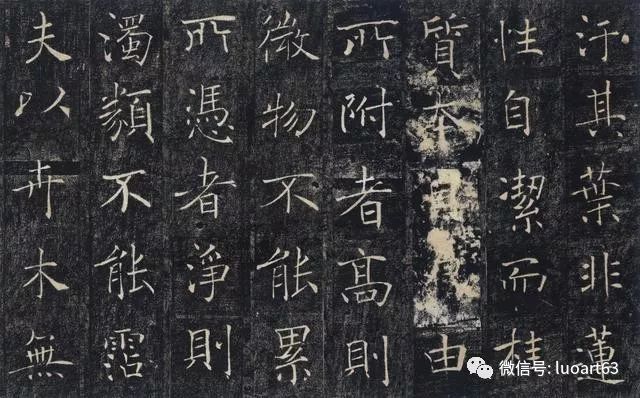 汙其葉非蓮
性自潔而桂
質本由
所附者高則
微物不能累
所憑者淨則
濁類不能霑
夫以卉木無
微信号: luoart63